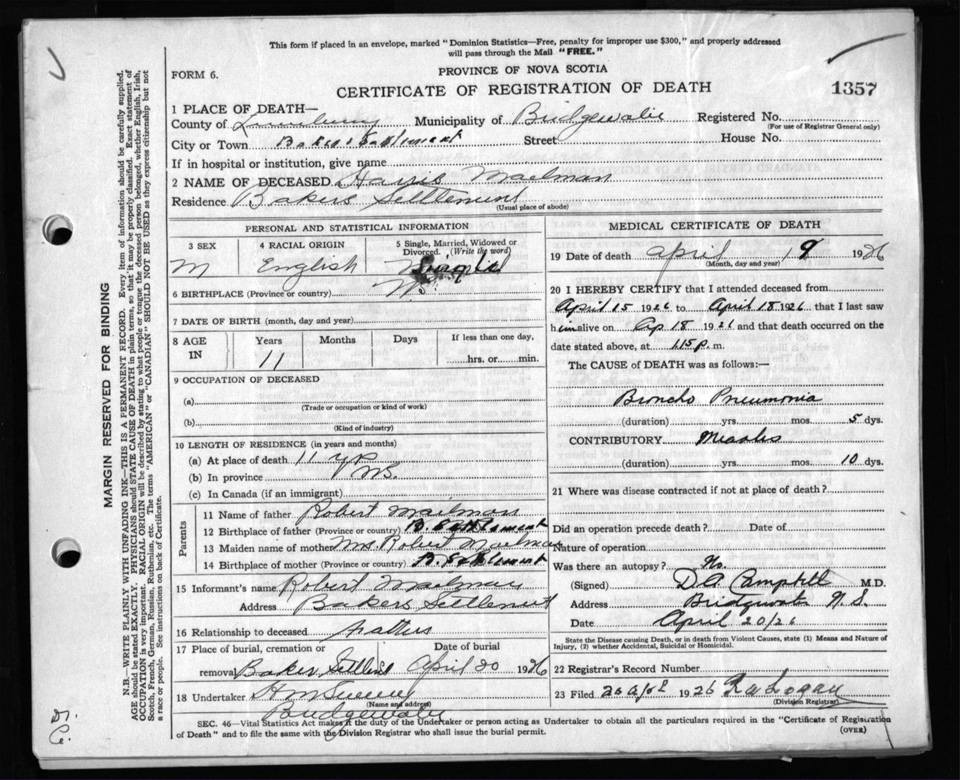 This form if placed in an envelope, marked "Dominion Statistics—Free, penalty for improper use $300," and properly addressed
will pass through the Mail "FREE."
FORM 6.
PROVINCE OF NOVA SCOTIA
CERTIFICATE OF REGISTRATION OF DEATH
1357
1 PLACE OF DEATH—
County of Lunenburg Municipality of Bridgewater Registered No.
(For use of Registrar General only)
City or Town Bakers Settlement Street House No.
If in hospital or institution, give name
2 NAME OF DECEASED Harris Mailman
Residence Bakers Settlement
(Usual place of abode)
PERSONAL AND STATISTICAL INFORMATION
3 SEX 4 RACIAL ORIGIN 5 Single, Married, Widowed or
Divorced. (Write the word)
M English Single
6 BIRTHPLACE (Province or country) N.S.
7 DATE OF BIRTH (month, day and year)
8 AGE IN Years Months Days If less than one day,
11 hrs. or min.
9 OCCUPATION OF DECEASED
(a)
(Trade or occupation or kind of work)
(b)
(Kind of industry)
10 LENGTH OF RESIDENCE (in years and months)
(a) At place of death 11 yrs
(b) In province N.S.
(c) In Canada (if an immigrant)
Parents
11 Name of father Robert Mailman
12 Birthplace of father (Province or country) B. Settlement
13 Maiden name of mother Mrs Robert Mailman
14 Birthplace of mother (Province or country) B. Settlement
15 Informant's name Robert Mailman
Address Bakers Settlement
16 Relationship to deceased father
17 Place of burial, cremation or Date of burial
removal Bakers Settlement April 20 1926
18 Undertaker
(Name and address)
Bridgewater
MEDICAL CERTIFICATE OF DEATH
19 Date of death April 19 1926
(Month, day and year)
20 I HEREBY CERTIFY that I attended deceased from
April 15 1926 to April 18 1926 that I last saw
him alive on Ap 18 1926 and that death occurred on the
date stated above, at 1.15 p. m.
The CAUSE of DEATH was as follows:—
Broncho Pneumonia
(duration) yrs. mos. 5 dys.
CONTRIBUTORY Measles
(duration) yrs. mos. 10 dys.
21 Where was disease contracted if not at place of death?
Did an operation precede death? Date of
Nature of operation
Was there an autopsy? No.
(Signed) D.A. Campbell M.D.
Address Bridgewater N.S.
Date April 20/26
State the Disease causing Death, or in death from Violent Causes, state (1) Means and Nature of
Injury, (2) whether Accidental, Suicidal or Homicidal.
22 Registrar's Record Number
23 Filed 20 April 1926 Logan
(Division Registrar)
SEC. 46—Vital Statistics Act makes it the duty of the Undertaker or person acting as Undertaker to obtain all the particulars required in the "Certificate of Registration
of Death" and to file the same with the Division Registrar who shall issue the burial permit.
(OVER)
MARGIN RESERVED FOR BINDING
N.B.—WRITE PLAINLY WITH UNFADING INK—THIS IS A PERMANENT RECORD. Every item of information should be carefully supplied.
AGE should be stated EXACTLY. PHYSICIANS should STATE CAUSE OF DEATH in plain terms, so that it may be properly classified. Exact statement of
OCCUPATION is very important. RACIAL ORIGIN will be described by stating to what people or tongue the deceased person belonged, whether English, Irish,
Scotch, French, German, Russian, Ruthenian, etc. The terms "AMERICAN" or "CANADIAN" SHOULD NOT BE USED as they express citizenship but not
a race or people. See instructions on back of Certificate.